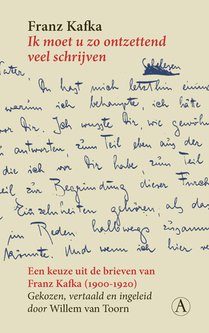 Franz Kafka
Ik moet u zo ontzettend
veel schrijven
Schelesen
Vater,
Du hast mich letzthin einma
warum ich behaupte, ich hätte
vor Dir. Ich wusste Dir, wie gewöhn
antworten, zum Teil eben aus der
die ich vor Dir habe, zum Teil
zur Begründung dieser Furch
Einzelheiten gehören, als das
im Reden halbwegs zusamme
könnte. Und wenn ich hier
Een keuze uit de brieven van
Franz Kafka (1900-1920)
Gekozen, vertaald en ingeleid
door Willem van Toorn
A